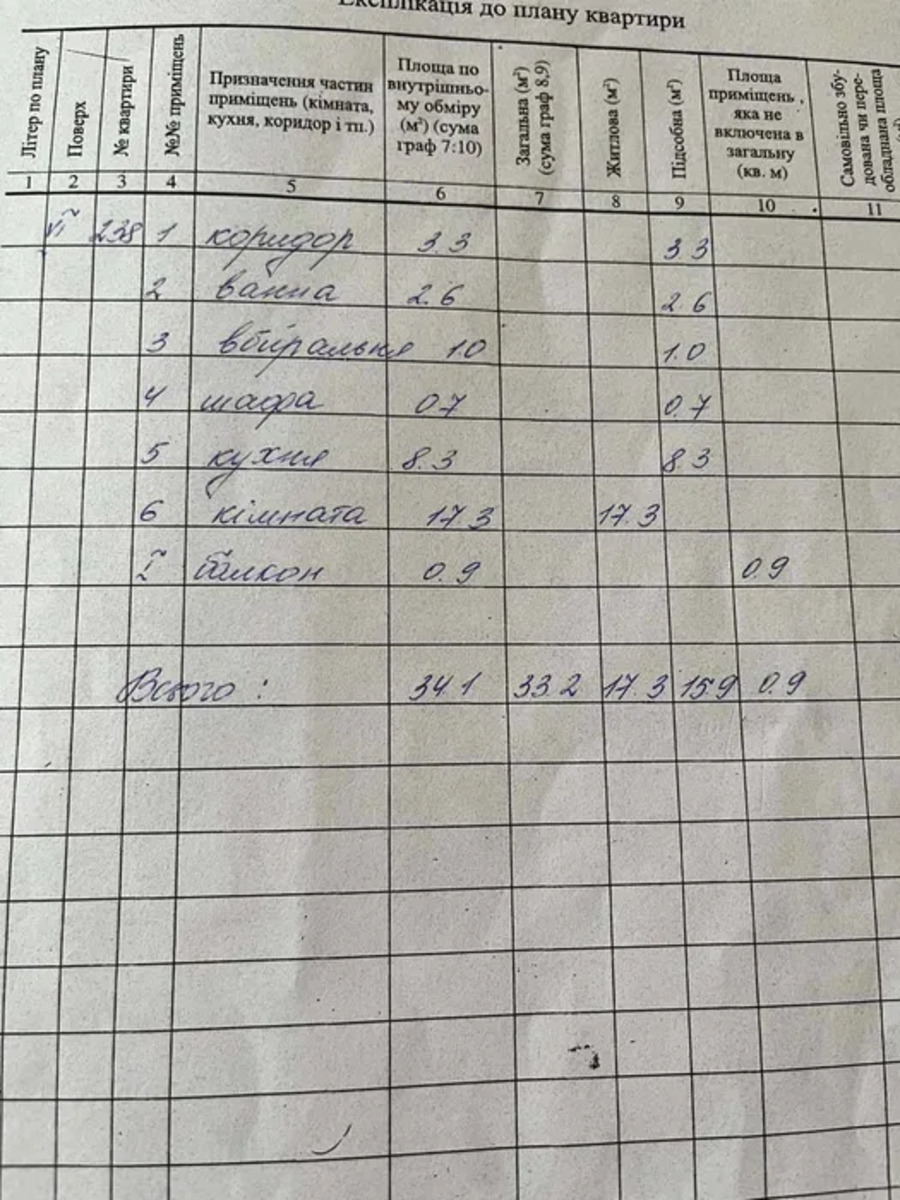 Експлікація до плану квартири
Літер по плану | Поверх | № квартири | №№ приміщень | Призначення частин приміщень (кімната, кухня, коридор і тп.) | Площа по внутрішньо-му обміру (м²) (сума граф 7:10) | Загальна (м²) (сума граф 8,9) | Житлова (м²) | Підсобна (м²) | Площа приміщень, яка не включена в загальну (кв. м) | Самовільно збу-дована чи пере-обладнана площа (м²)
1 2 3 4 5 6 7 8 9 10 11
VI 238 1 коридор 3.3 3.3
2 ванна 2.6 2.6
3 вбиральня 1.0 1.0
4 шафа 0.7 0.7
5 кухня 8.3 8.3
6 кімната 17.3 17.3
I балкон 0.9 0.9
Всього : 34.1 33.2 17.3 15.9 0.9